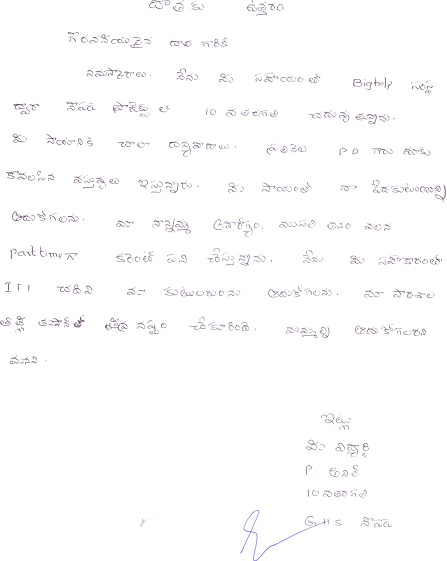 దాతకు ఉత్తరం
గౌరవనీయులైన దాత గారికి
నమస్కారాలు. నేను మీ సహాయంతో Bighelp సంస్థ
ద్వారా నౌపడ ప్రాజెక్ట్ లో 10 వ తరగతి చదువు తున్నాను.
మీ సాయానికి చాలా ధన్యవాదాలు. ప్రతినెల P D గారు మాకు
కావలసిన వస్తువులు ఇస్తున్నారు. మీ సాయంతో నా పేదకుటుంబాన్ని
ఆదుకోగలను. మా నాన్నమ్మ అనారోగ్యం, ముసలి తనం వలన
Part timeగా కరెంట్ పని చేస్తున్నాను. నేను మీ సహకారంతో
ITI చదివి మా కుటుంబంను ఆదుకోగలను. మా పాఠశాల
తిత్లీ తుపాన్ తో తీవ్ర నష్టం చేకూరింది. మమ్మల్ని ఆదుకోగలరని
మనవి.
ఇట్లు
మీ విద్యార్థి
P. అనిల్
10 వతరగతి
GHS నౌపడ